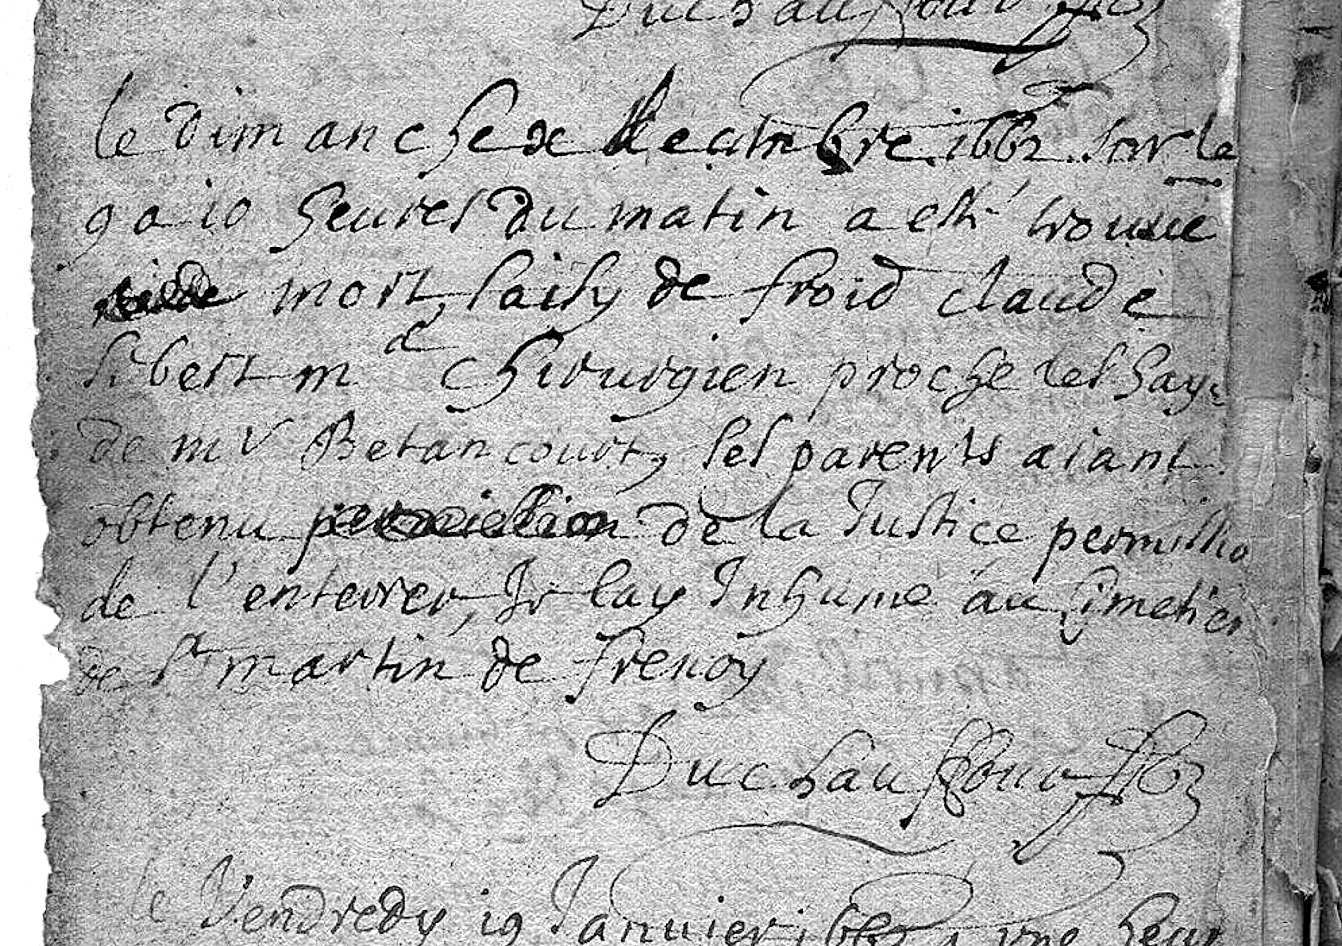 Duchauffour
le dimanche de decembre 1662 sur le
9 a 10 heures du matin a esté trouué
mort, saisy de froid claude
sibert m chirurgien proche les hay
de mr Betancourt, ses parents aiant
obtenu de la Justice permissio
de l'enterrer, Je lay Inhumé au Cimetier
de st martin de frenoy
Duchauffour
le Vendredy 19 Januier 1662 a une heur